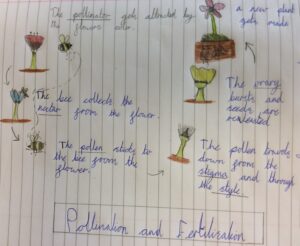 The pollinator gets attracted by
the flowers color.
The bee collects the
nectar from the flower.
The pollen sticks to
the bee from the
flower.
The pollen travels
down from the
stigma and through
the style.
The ovary
bursts and
seeds are
released
a new plant
gets made
Pollination and Fertilization